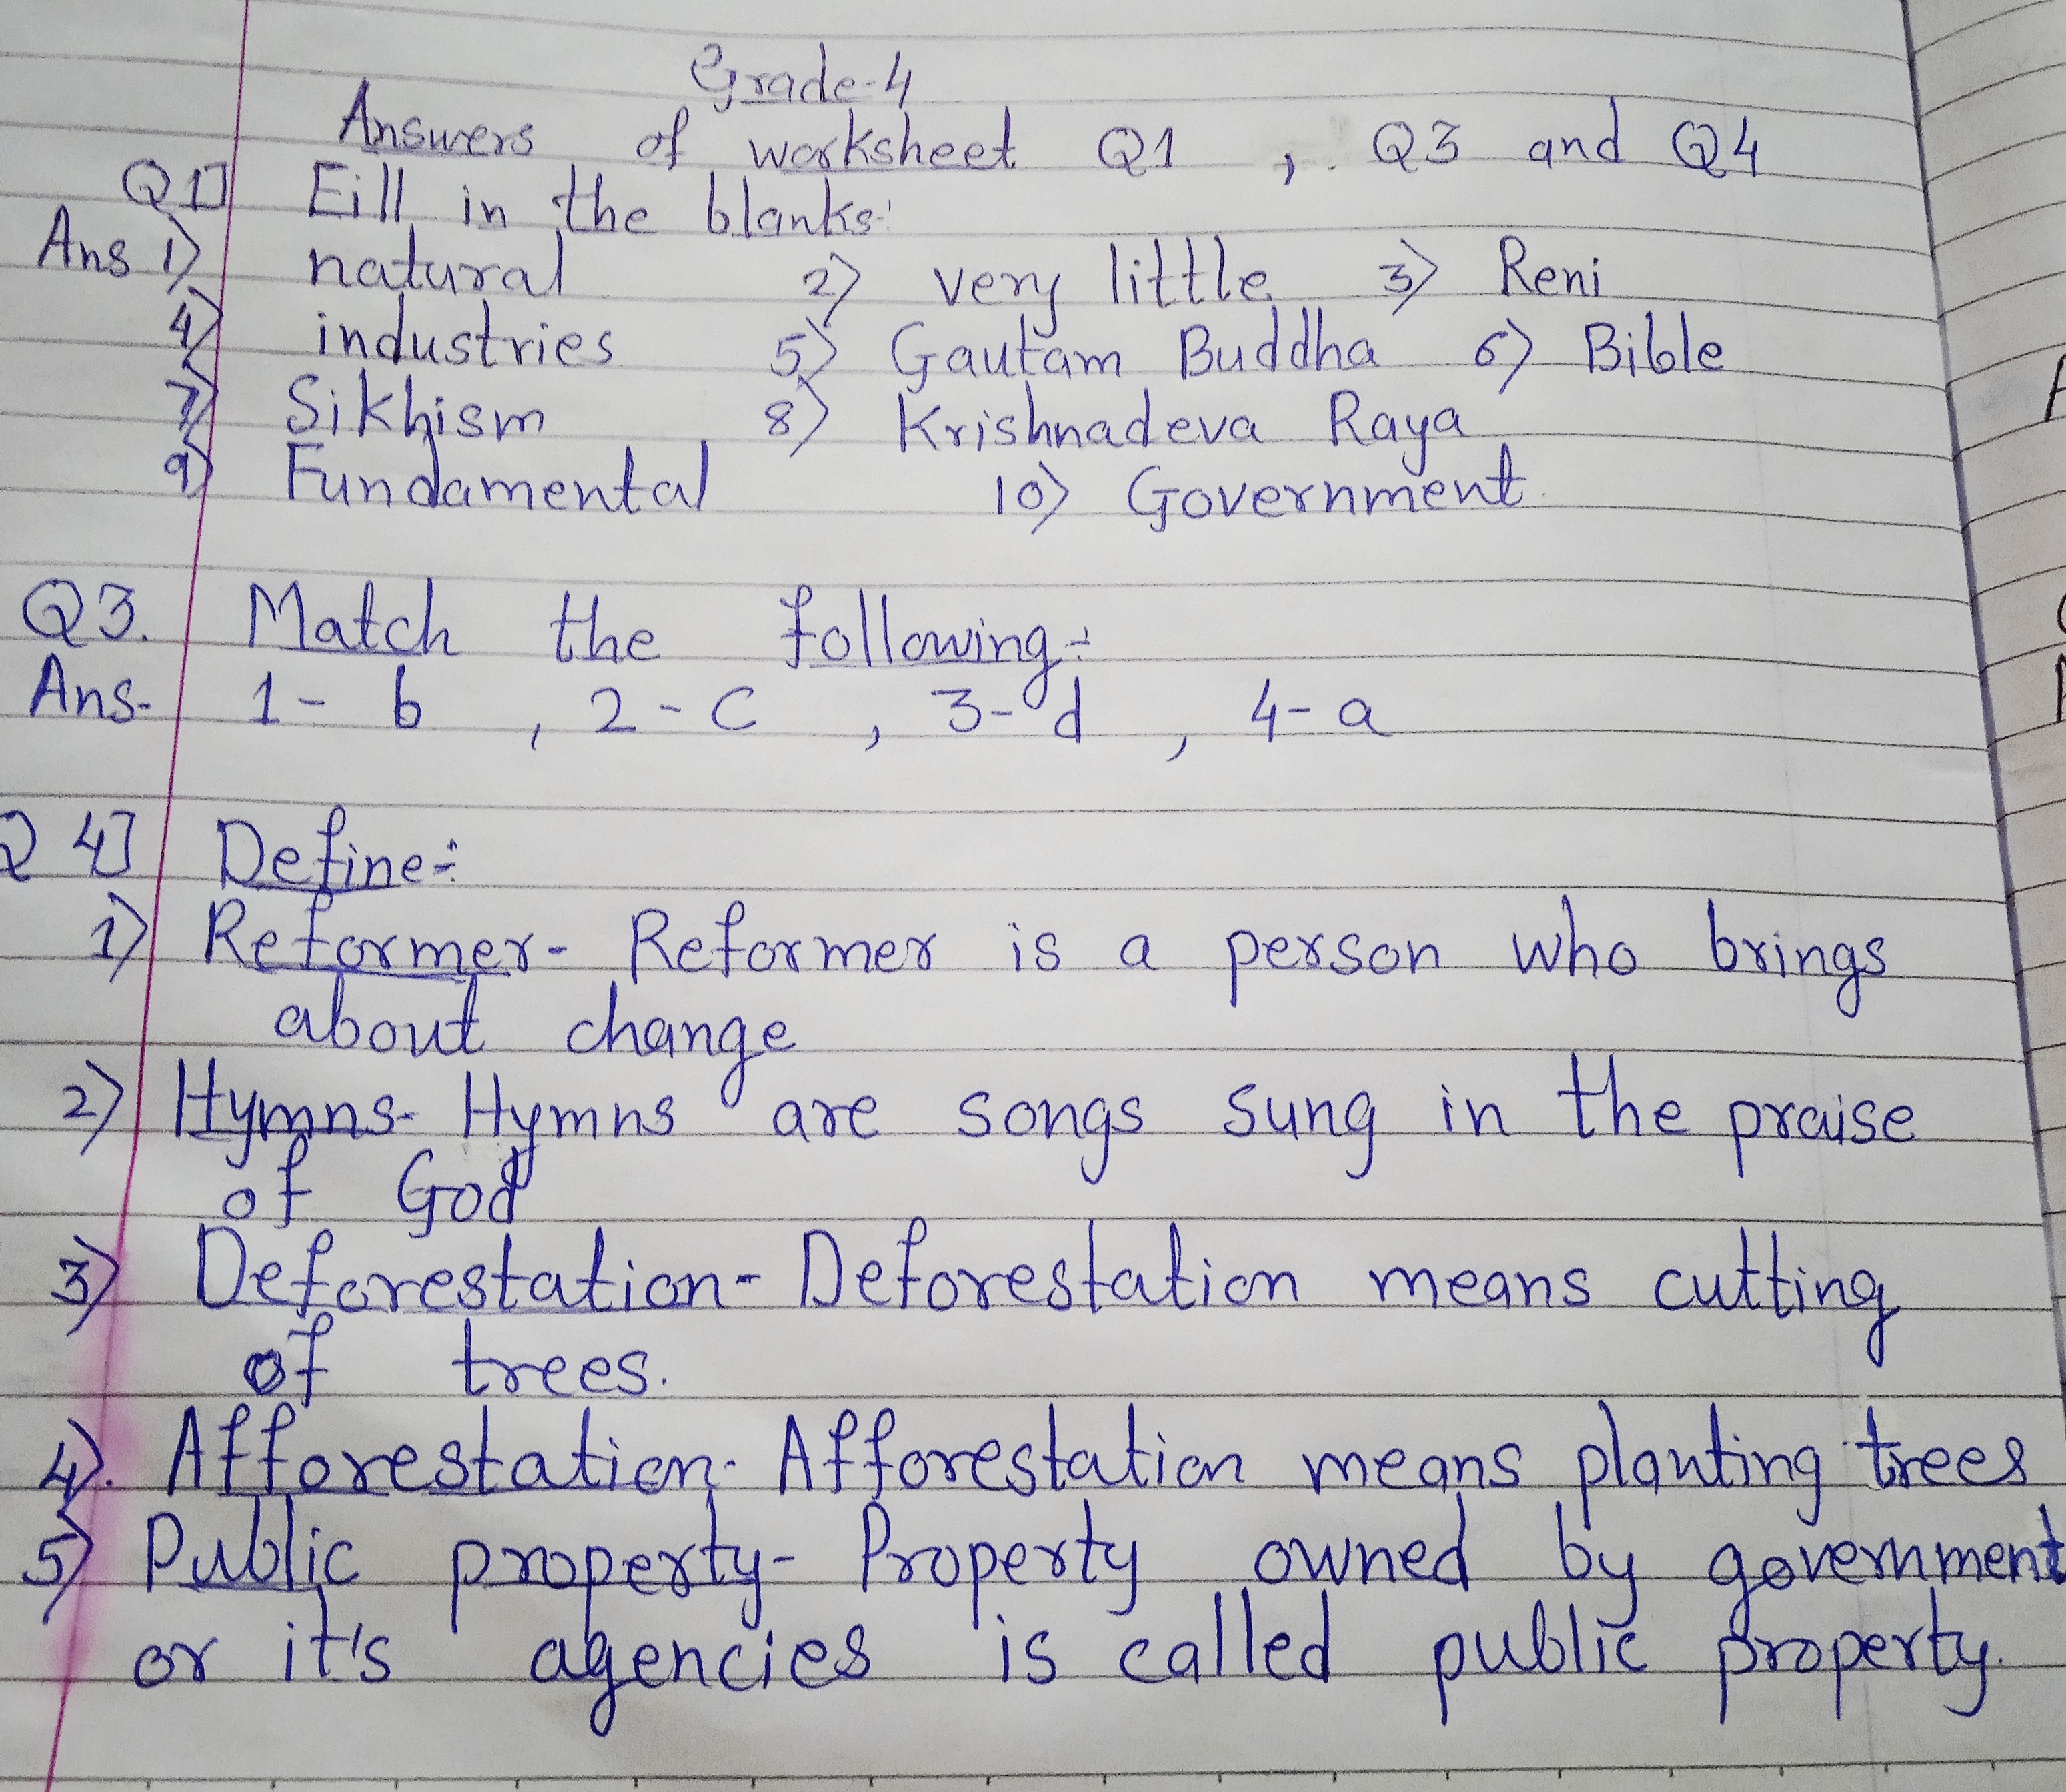 Grade-4
Answers of worksheet Q1 , Q3 and Q4
Q1] Eill in the blanks:
Ans 1) natural 2) very little 3) Reni
4) industries 5) Gautam Buddha 6) Bible
7) Sikhism 8) Krishnadeva Raya
9) Fundamental 10) Government.
Q3. Match the following:-
Ans- 1- b , 2-c , 3-d , 4-a
Q 4] Define:-
1) Reformer- Reformer is a person who brings
about change
2) Hymns- Hymns are songs sung in the praise
of God
3) Deforestation- Deforestation means cutting
of trees.
4). Afforestation- Afforestation means planting trees
5) Public property- Property owned by government
or it's agencies is called public property.